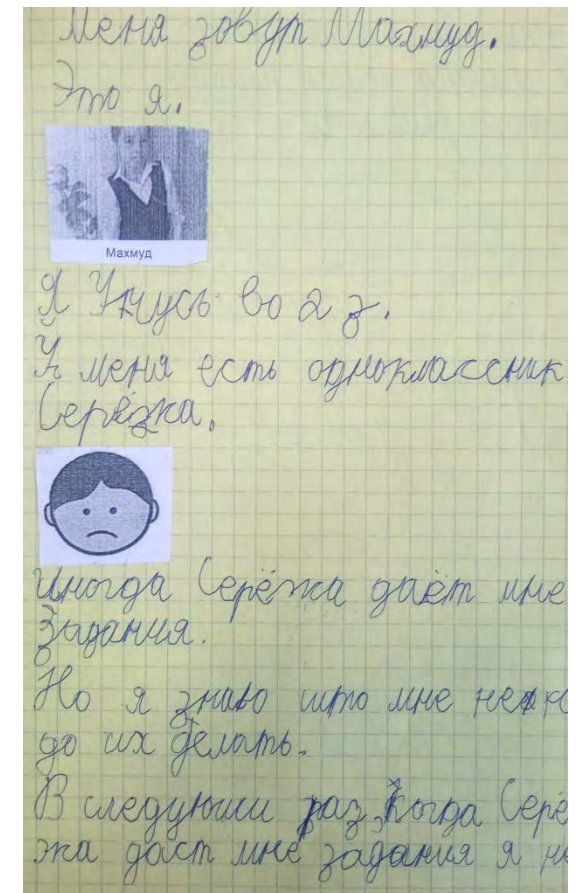 Меня зовут Махмуд.
Это я.
Махмуд
Я Учусь во 2 з.
У меня есть одноклассник
Серёжа.
Иногда Серёжа даёт мне
Задания.
Но я знаю што мне не
до их делать.
В следующи раз, когда Серё
жа даст мне задания я не